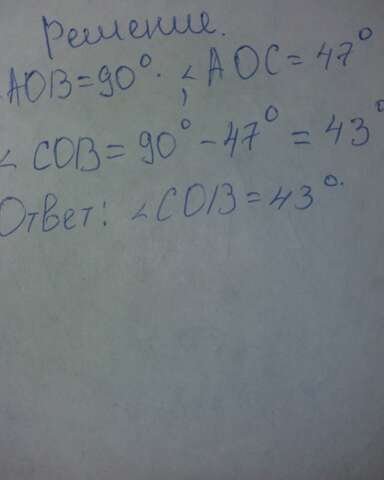 Решение.
∠AOB=90°; ∠AOC=47°
∠COB=90°-47°=43°
Ответ: ∠COB=43°.